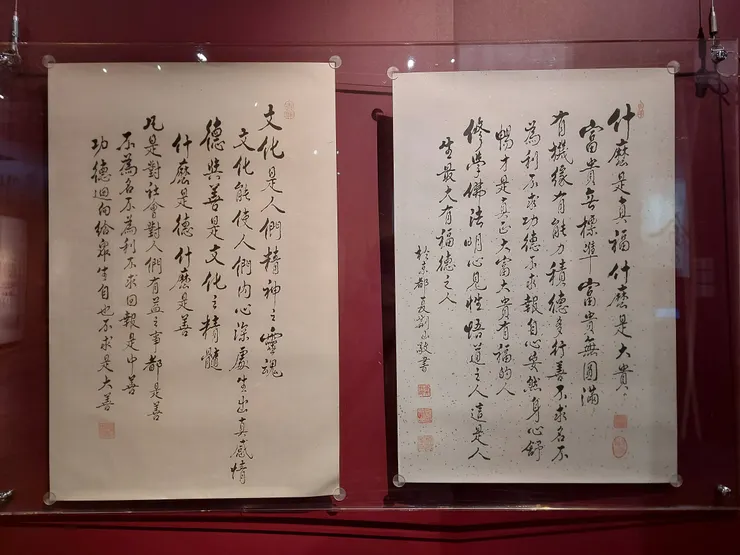 什麼是真福什麼是大貴
富貴無標準富貴無圓滿
有機緣有能力積德多行善不求名不
為利不求功德不求報自心安然身心舒
暢才是真正大富大貴有福的人
修學佛法明心見性悟道之人這是人
生最大有福德之人
於京都 夏荊山敬書
文化是人們精神之靈魂
文化能使人們內心深處生出真感情
德與善是文化之精髓
什麼是德什麼是善
凡是對社會對人們有益之事都是善
不為名不為利不求回報是中善
功德迴向給眾生自也不求是大善